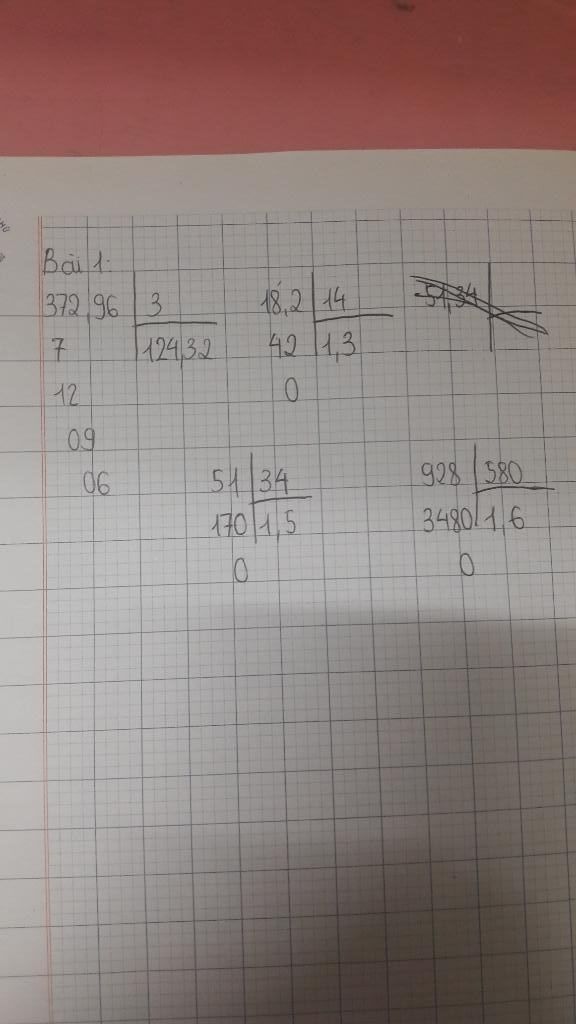 Bài 1:
372,96 3 18,2 14
7 124,32 42 1,3
12 0
09
06 51 34 928 580
170 1,5 3480 1,6
0 0